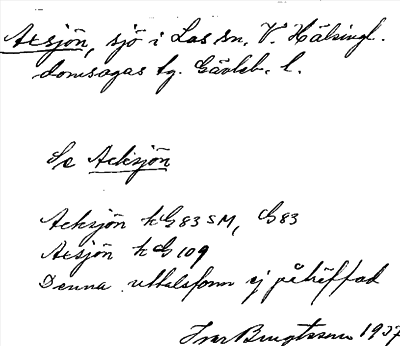 Aesjön, sjö i Los sn. V. Hälsingl.
domsagas tg. Gävleb. l.
Se Acksjön
Acksjön k G83 SM, G83
Aesjön k G 109
Denna uttalsform ej påträffad
Ivar Bengtsson 1937